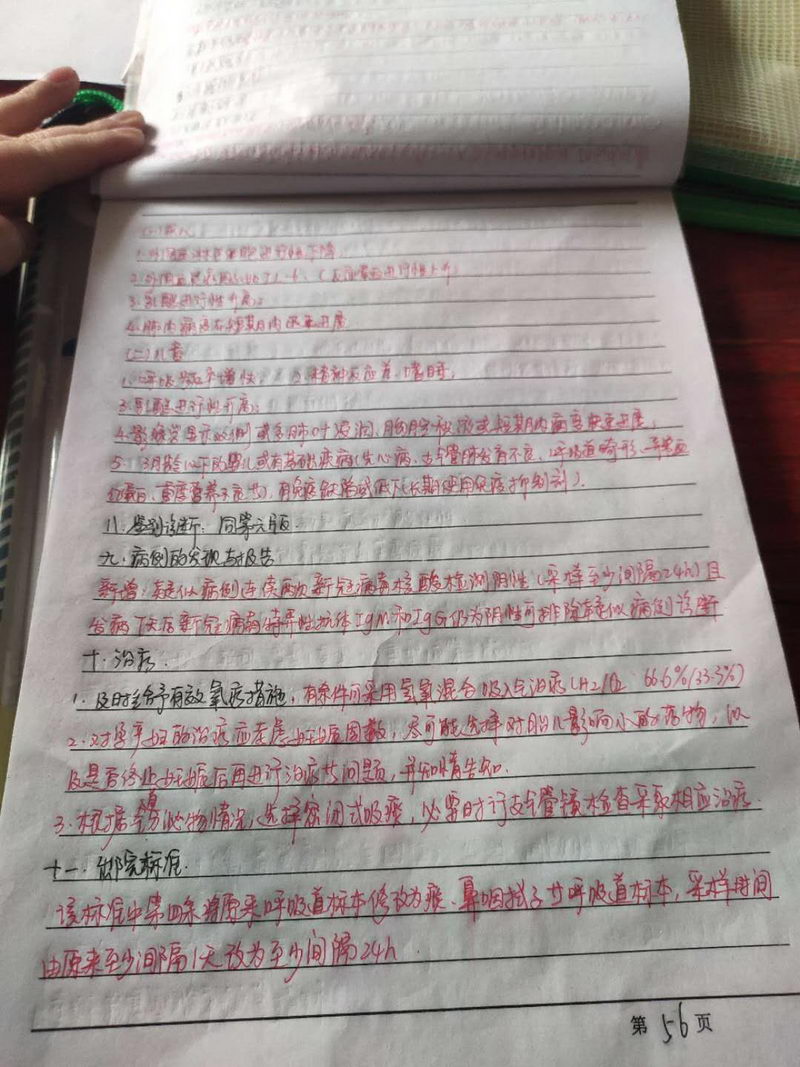 (一)成人
1.外周血淋巴细胞进行性下降；
2.外周血炎症因子如IL-6、C反应蛋白进行性上升；
3.乳酸进行性升高；
4.肺内病变在短期内迅速进展
(二)儿童
1.呼吸频率增快； 2.精神反应差、嗜睡；
3.乳酸进行性升高；
4.影像学显示双侧或多肺叶浸润、胸腔积液或短期内病变快速进展；
5. 3月龄以下的婴儿或有基础疾病(先心病、支气管肺发育不良、呼吸道畸形、异常血
红蛋白、重度营养不良等)，有免疫缺陷或低下(长期使用免疫抑制剂).
八.鉴别诊断：同第六版
九.病例的发现与报告
新增：疑似病例连续两次新冠病毒核酸检测阴性(采样至少间隔24h)且
发病7天后新冠病毒特异性抗体IgM和IgG仍为阴性可排除疑似病例诊断
十.治疗.
1.及时给予有效氧疗措施，有条件可采用氢氧混合吸入气治疗(H2/O2: 66.6%/33.3%)
2.对孕产妇的治疗应考虑妊娠周数，尽可能选择对胎儿影响小的药物，以
及是否终止妊娠后再进行治疗等问题，并知情告知.
3.根据气道分泌物情况，选择密闭式吸痰，必要时行支气管镜检查采取相应治疗.
十一.出院标准.
该标准中第四条将原来呼吸道标本修改为痰、鼻咽拭子等呼吸道标本，采样时间
由原来至少间隔1天改为至少间隔24h.
第56页